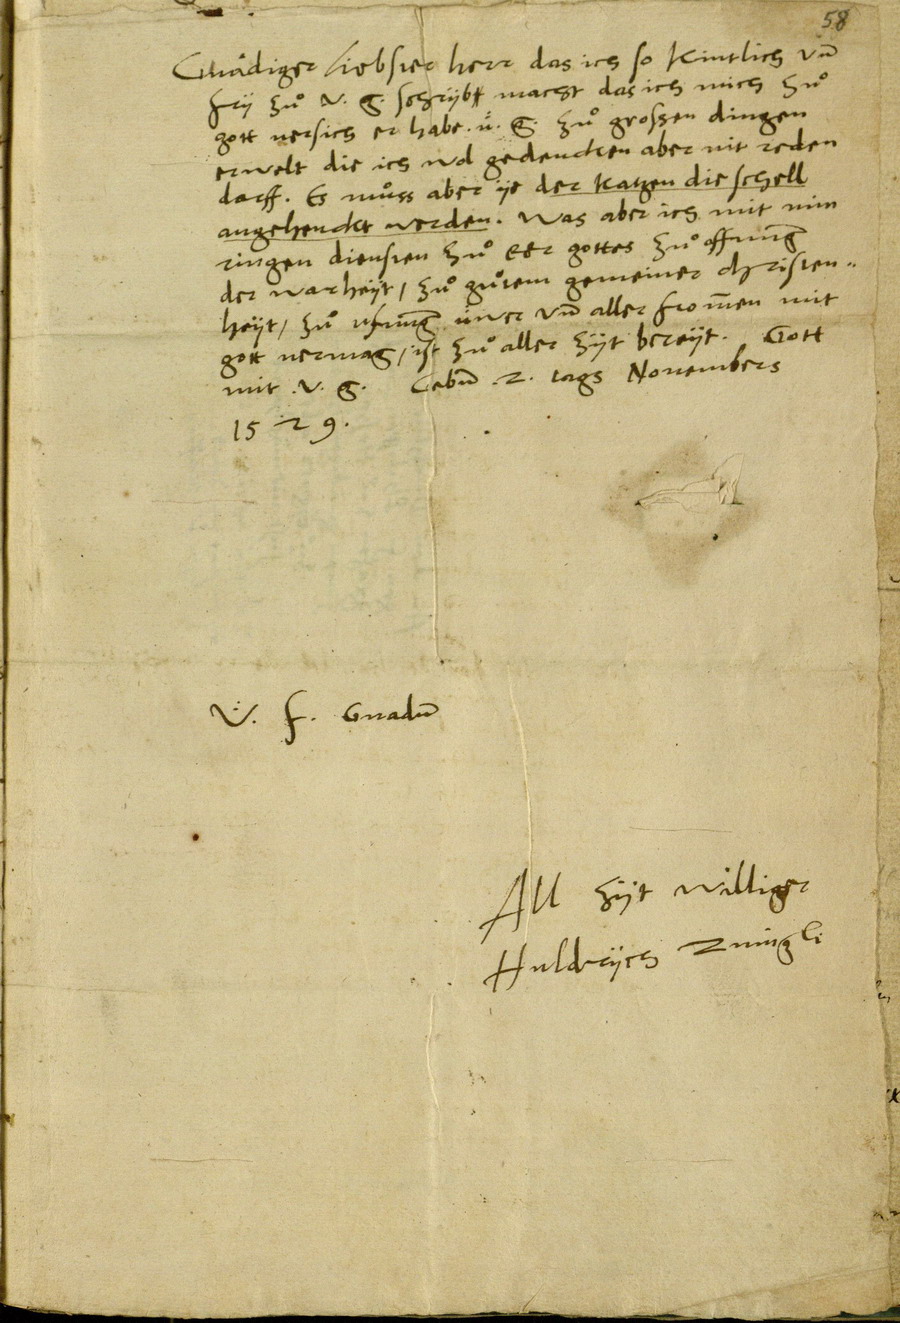 58
Gnädiger liebster herr das ich so kintlich vn̄
fry zů v. g. schryb, macht das ich mich zů
gott versich er habe. ü. g. zů grossen dingen
erwelt die ich wol gedencken aber nit reden
darff. Es můss aber ye der katzen die schell
angehenckt werden. Was aber ich mit min
ringen diensten zů eer gottes zů offnung
der warheyt, zů gůtem gemeiner christen⸗
heyt, zů ufnung üwer vn̄ aller from̄en mit
gott vermag, ist zů aller zyt bereyt. Gott
mit .v. g. Gebn̄ 2. tags Novembers
1529.
V. f. Gnadn̄
All zyt williger
Huldrych Zuingli